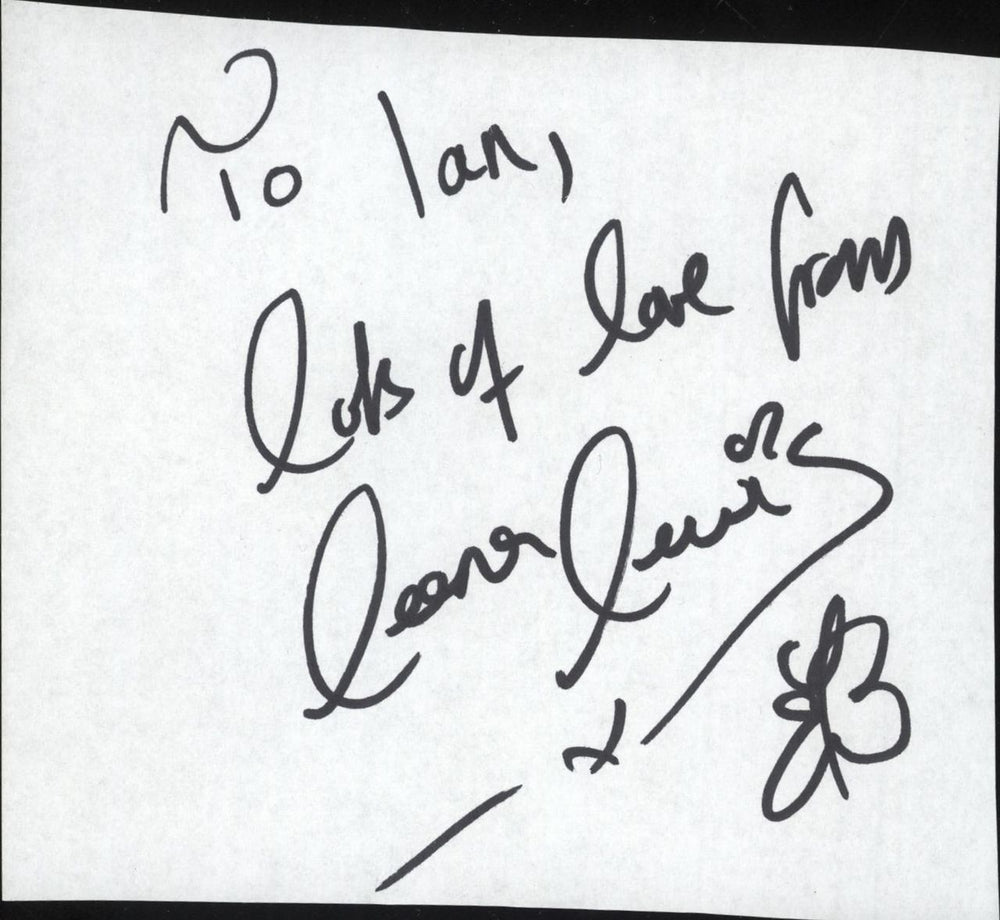 To Ian,
lots of love from
Leona Lewis
x